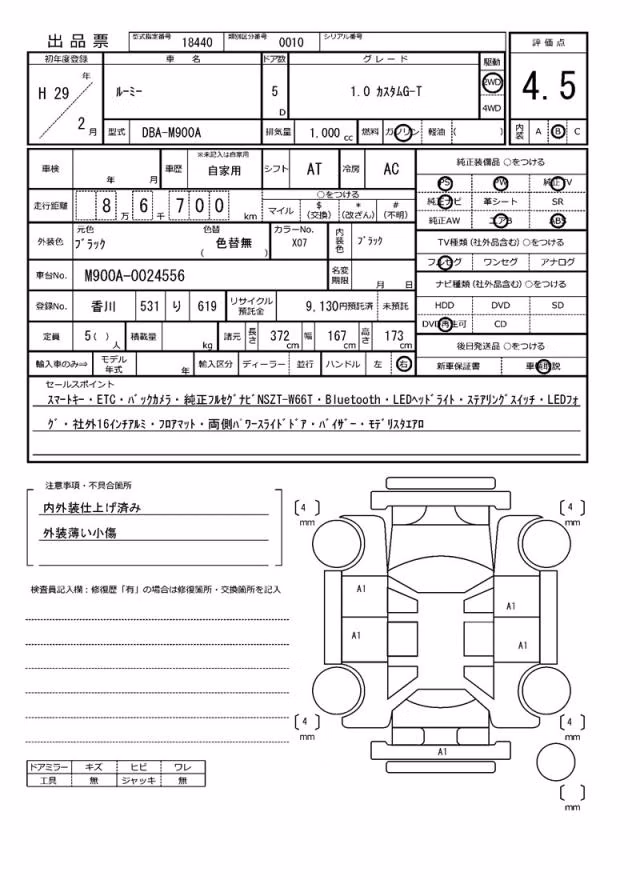 出品票 型式指定番号 18440 類別区分番号 0010 シリアル番号
評価点
4.5
内装 A B C
初年度登録 車名 ドア数 グレード 駆動
H 29 年 2 月
ルーミー 5 D 1.0 カスタムG-T 2WD
4WD
型式 DBA-M900A 排気量 1.000 cc 燃料 ガソリン 軽油 ( )
車検 年 月 車歴 ※未記入は自家用 自家用 シフト AT 冷房 AC
走行距離 8 万 6 千 7 0 0 km
○をつける
マイル $ (交換) * (改ざん) # (不明)
外装色 元色 ブラック 色替 ( 色替無 ) カラーNo. X07 内装色 ブラック
車台No. M900A-0024556 名変期限 月 日
登録No. 香川 531 り 619 リサイクル預託金 9,130円預託済 未預託
定員 5( ) 人 積載量 kg 諸元 長さ 372 cm 幅 167 cm 高さ 173 cm
輸入車のみ⇒ モデル年式 年 輸入区分 ディーラー ・ 並行 ハンドル 左 右
純正装備品 ○をつける
PS PW 純正TV
純正ナビ 革シート SR
純正AW エアB ABS
TV種類 (社外品含む) ○をつける
フルセグ ワンセグ アナログ
ナビ種類 (社外品含む) ○をつける
HDD DVD SD
DVD再生可 CD
後日発送品 ○をつける
新車保証書 車輌取説
セールスポイント
スマートキー・ETC・バックカメラ・純正フルセグナビNSZT-W66T・Bluetooth・LEDヘッドライト・ステアリングスイッチ・LEDフォ
グ・社外16インチアルミ・フロアマット・両側パワースライドドア・バイザー・モデリスタエアロ
注意事項・不具合箇所
内外装仕上げ済み
外装薄い小傷
検査員記入欄：修復歴「有」の場合は修復箇所・交換箇所を記入
ドアミラー キズ ヒビ ワレ
工具 無 ジャッキ 無
[ 4 ] mm
[ 4 ] mm
A1
A1
A1
A1
[ 4 ] mm
[ 4 ] mm
A1
[ ] mm